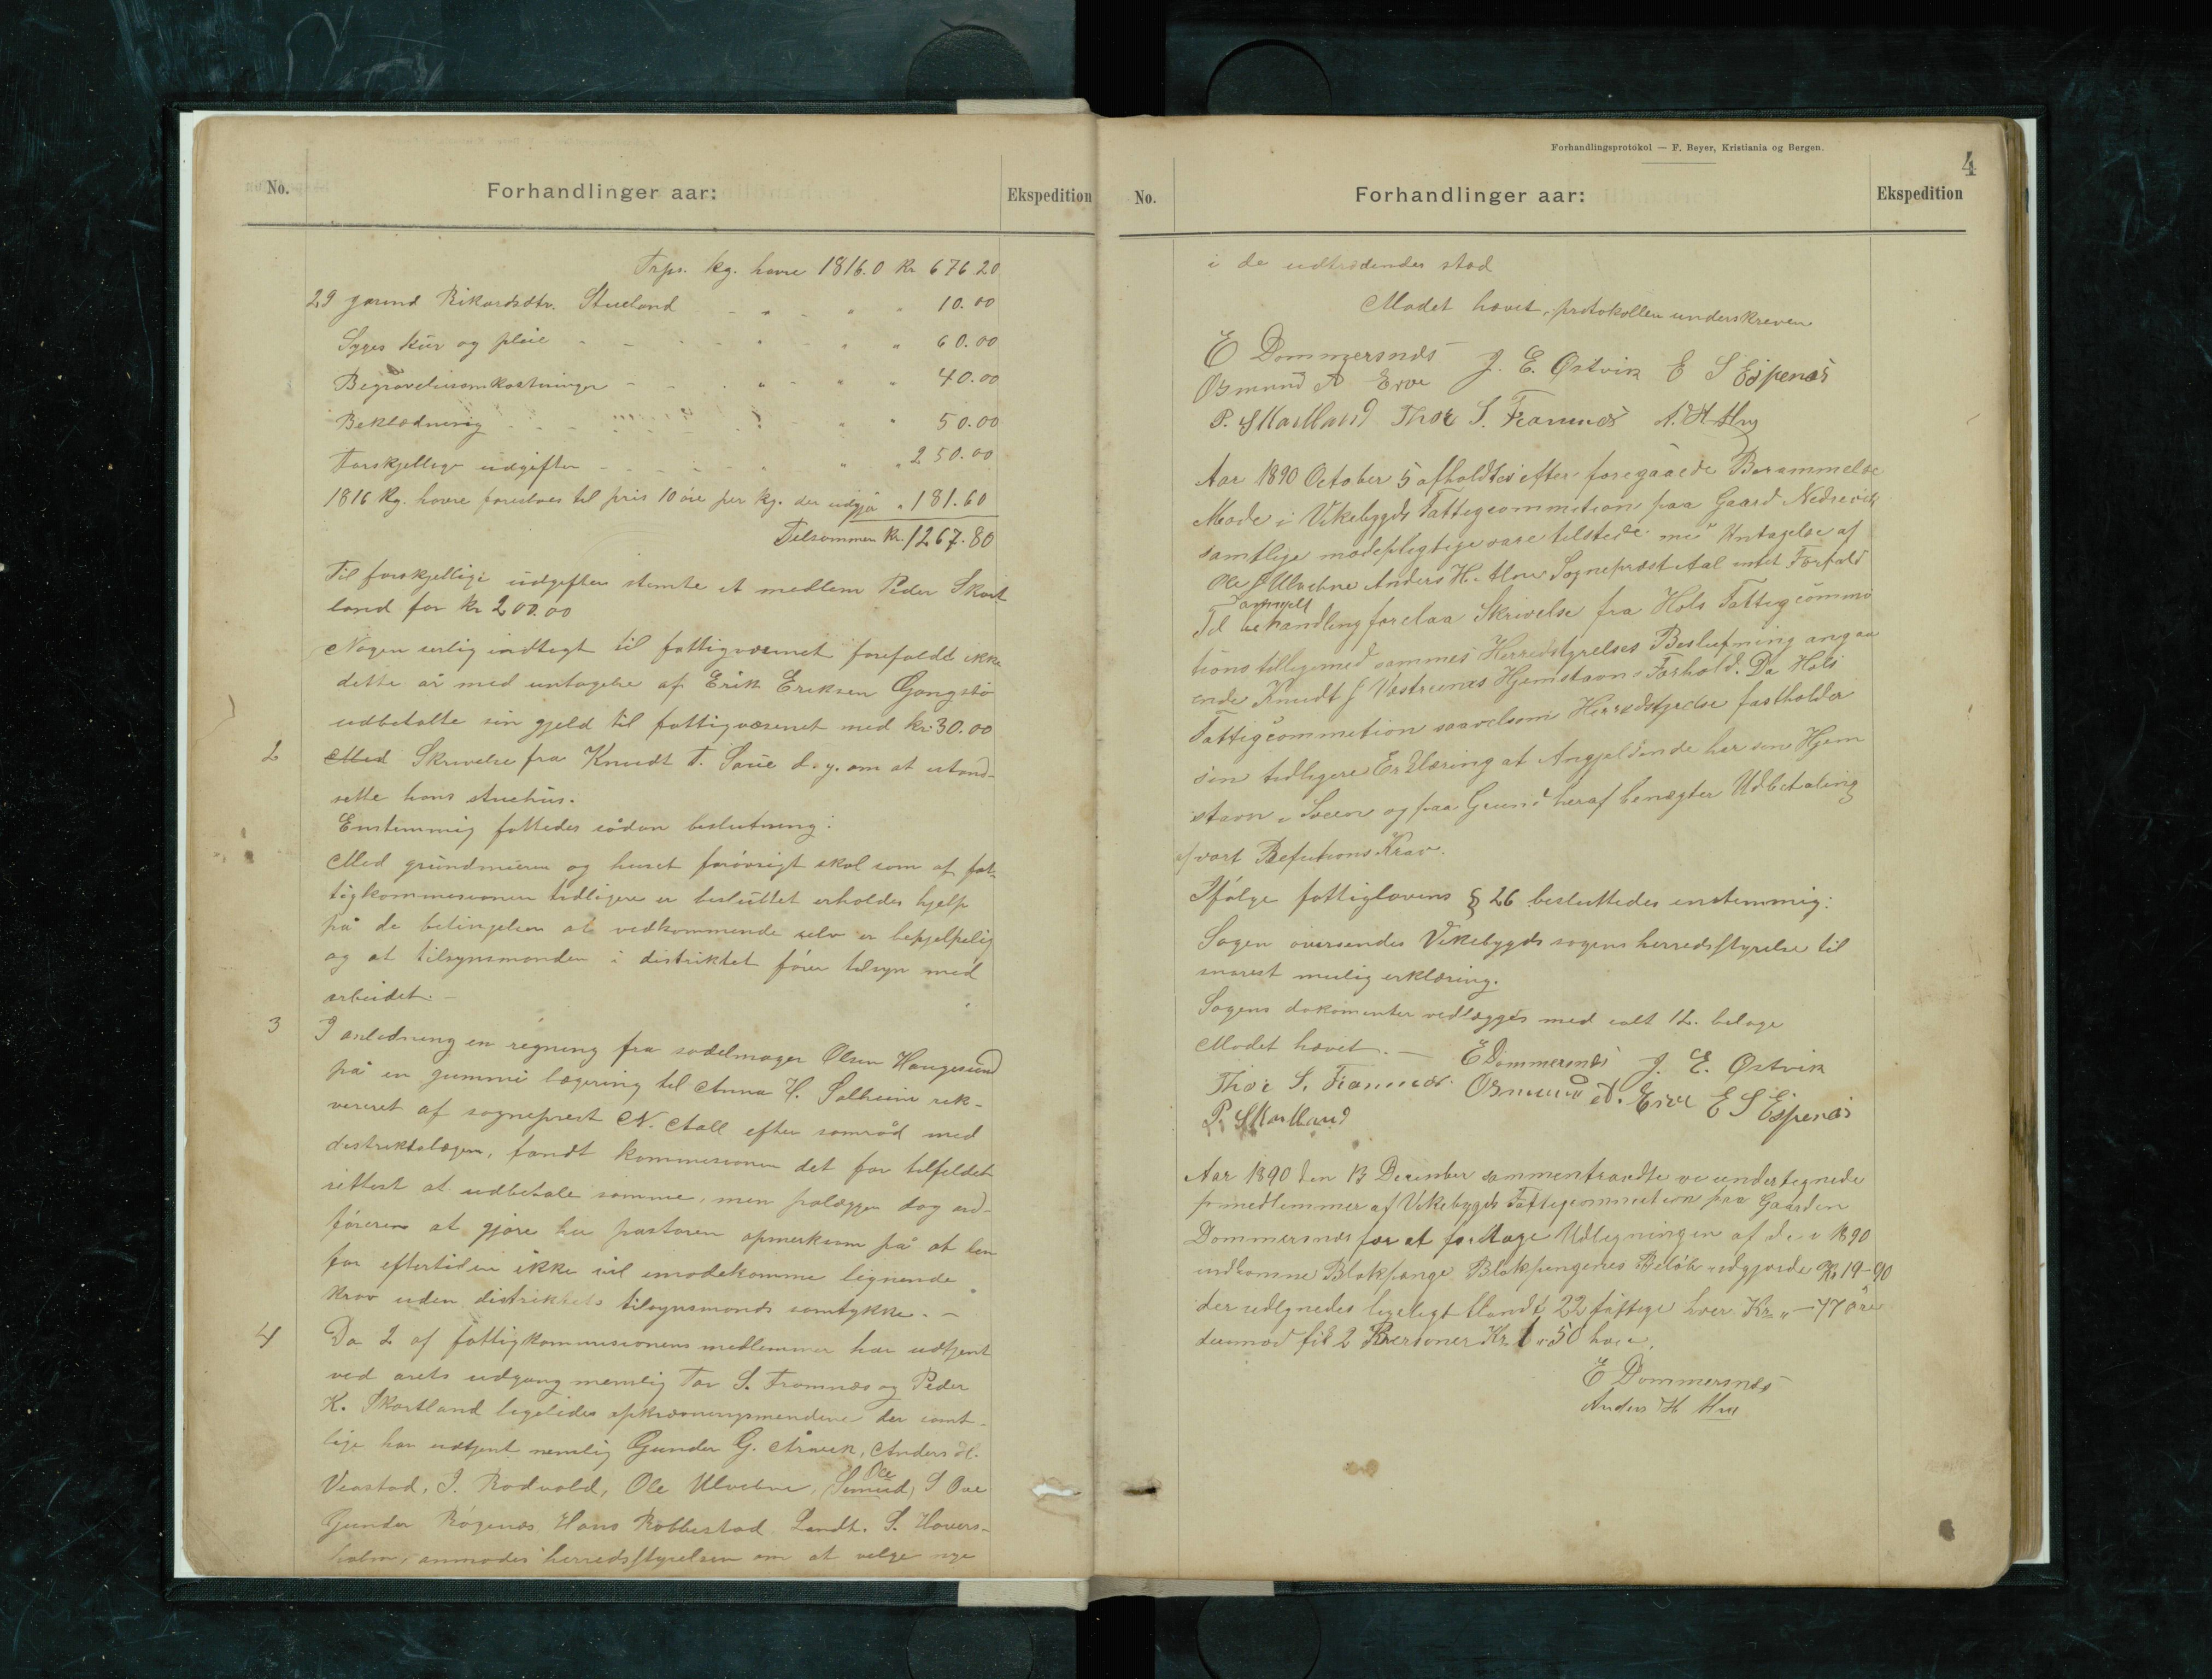 No.
Forhandlinger aar:
Ekspedition
Trps. kg. havre 1816.0 kr 676.20
29 Jorund Rikardsdtr. Stueland " " 10.00
Syges kur og pleie " " 60.00
Begravelsesomkostninger " " 40.00
Beklædning " " 50.00
Forskjellige udgifter " " 250.00
1816 kg. havre foreslaes til pris 10 øre per kg. der udgjør " 181.60
Tilsammen kr. 1267.80
Til forskjellige udgifter stemte et medlem Peder Skart-
land for kr 200.00
Nogen særlig indtægt til fattigvæsenet forefaldt ikke
dette år med untagelse af Erik Eriksen Gangstø
udbetalte sin gjeld til fattigvæsenet med kr. 30.00
2 Med Skrivelse fra Knudt T. Saue d. y. om at istand-
sette hans stuehus.
Enstemmig fattedes sådan beslutning:
Med grundmuren og huset forøvrigt skal som af fat-
tigkommisionen tidligere er besluttet erholdes hjelp
på de betingelser at vedkommende selv er behjelpelig
og at tilsynsmanden i distriktet fører tilsyn med
arbeidet. —
3 I anledning en regning fra sadelmager Olsen Haugesund
på en gummi lægering til Anna H. Solheim rek-
vereret af sogneprest N. Aall efter samråd med
distriktslægen, fandt kommisionen det for tilfeldet
rettest at udbetale samme, men palægger dog ord-
føreren at gjøre her pastoren opmerksom på at den
for eftertiden ikke vil imødekomme lignende
krav uden distriktets tilsynsmands samtykke. —
4 Da 2 af fattigkommisionens medlemmer har udtjent
ved arets udgang nemlig Tor S. Framnæs og Peder
K. Skartland ligeledes opkrævningsmendene der samt-
lige har udtjent nemlig Gunder G. Årvik, Anders H.
Veastad, I. Rødvold, Ole Ulvebne, Ole (Simund) S Øve
Gunder Røgenæs, Hans Robbestad Lendt. S. Hovers-
holm, anmodes herredsstyrelsen om at velge nye
Forhandlingsprotokol — F. Beyer, Kristiania og Bergen.
4
No.
Forhandlinger aar:
Ekspedition
i de udtrædendes sted
Mødet hævet, protokollen underskreven
E Dommersnæs J. E. Østvik E S Espenæs
Osmund A Erve
P. Skartland Thor S. Framnæs A. H Hry
Aar 1890 October 5 afholdtes efter foregaaede Berammelse
Møde i Vikebygds Fattigcommition paa Gaard Nedrevik
samtlige mødepligtige vare tilstede med Untagelse af
Ole J Ulvebne Anders H. Sognepræst Aal intet Forfald
anmeldt
Til behandling forelaa Skrivelse fra Hols Fattigcommi
tions tilligemed sammes Herredstyrelses Beslutning angaa
ende Knudt J Vestrenes Hjemstavns Forhold. Da Hols
Fattigcommition saavelsom Herredstyrelse fastholder
sin tidligere Erklæring at Angjeldende har sin Hjem
stavn i Sveen og paa Grund heraf benægter Udbetaling
af vort Refutions Krav.
Ifølge fattiglovens § 26 besluttedes enstemmig:
Sagen oversendes Vikebygds sogens herredsstyrelse til
snarest mulig erklæring.
Sagens dokumenter vedlægges med ialt 12. belage
Mødet hævet. — E Dommersnæs J. E. Østvik
Thor S. Framnæs. Osmund A. Erve E S Espenæs
P. Skartland
Aar 1890 den 13 December sammentraadte vi undertegnede
medlemmer af Vikebygds Fattigcommition paa Gaarden
Dommersnæs for at foretage Udligningen af de i 1890
indkomne Blokpenge Blokpengenes Beløb udgjorde Kr 19-90
der udlignedes ligeligt blandt 22 fattige hver Kr " — 77 øre
derimod fik 2 Personer Kr 1 " 50 hver.
E Dommersnæs
Anders H